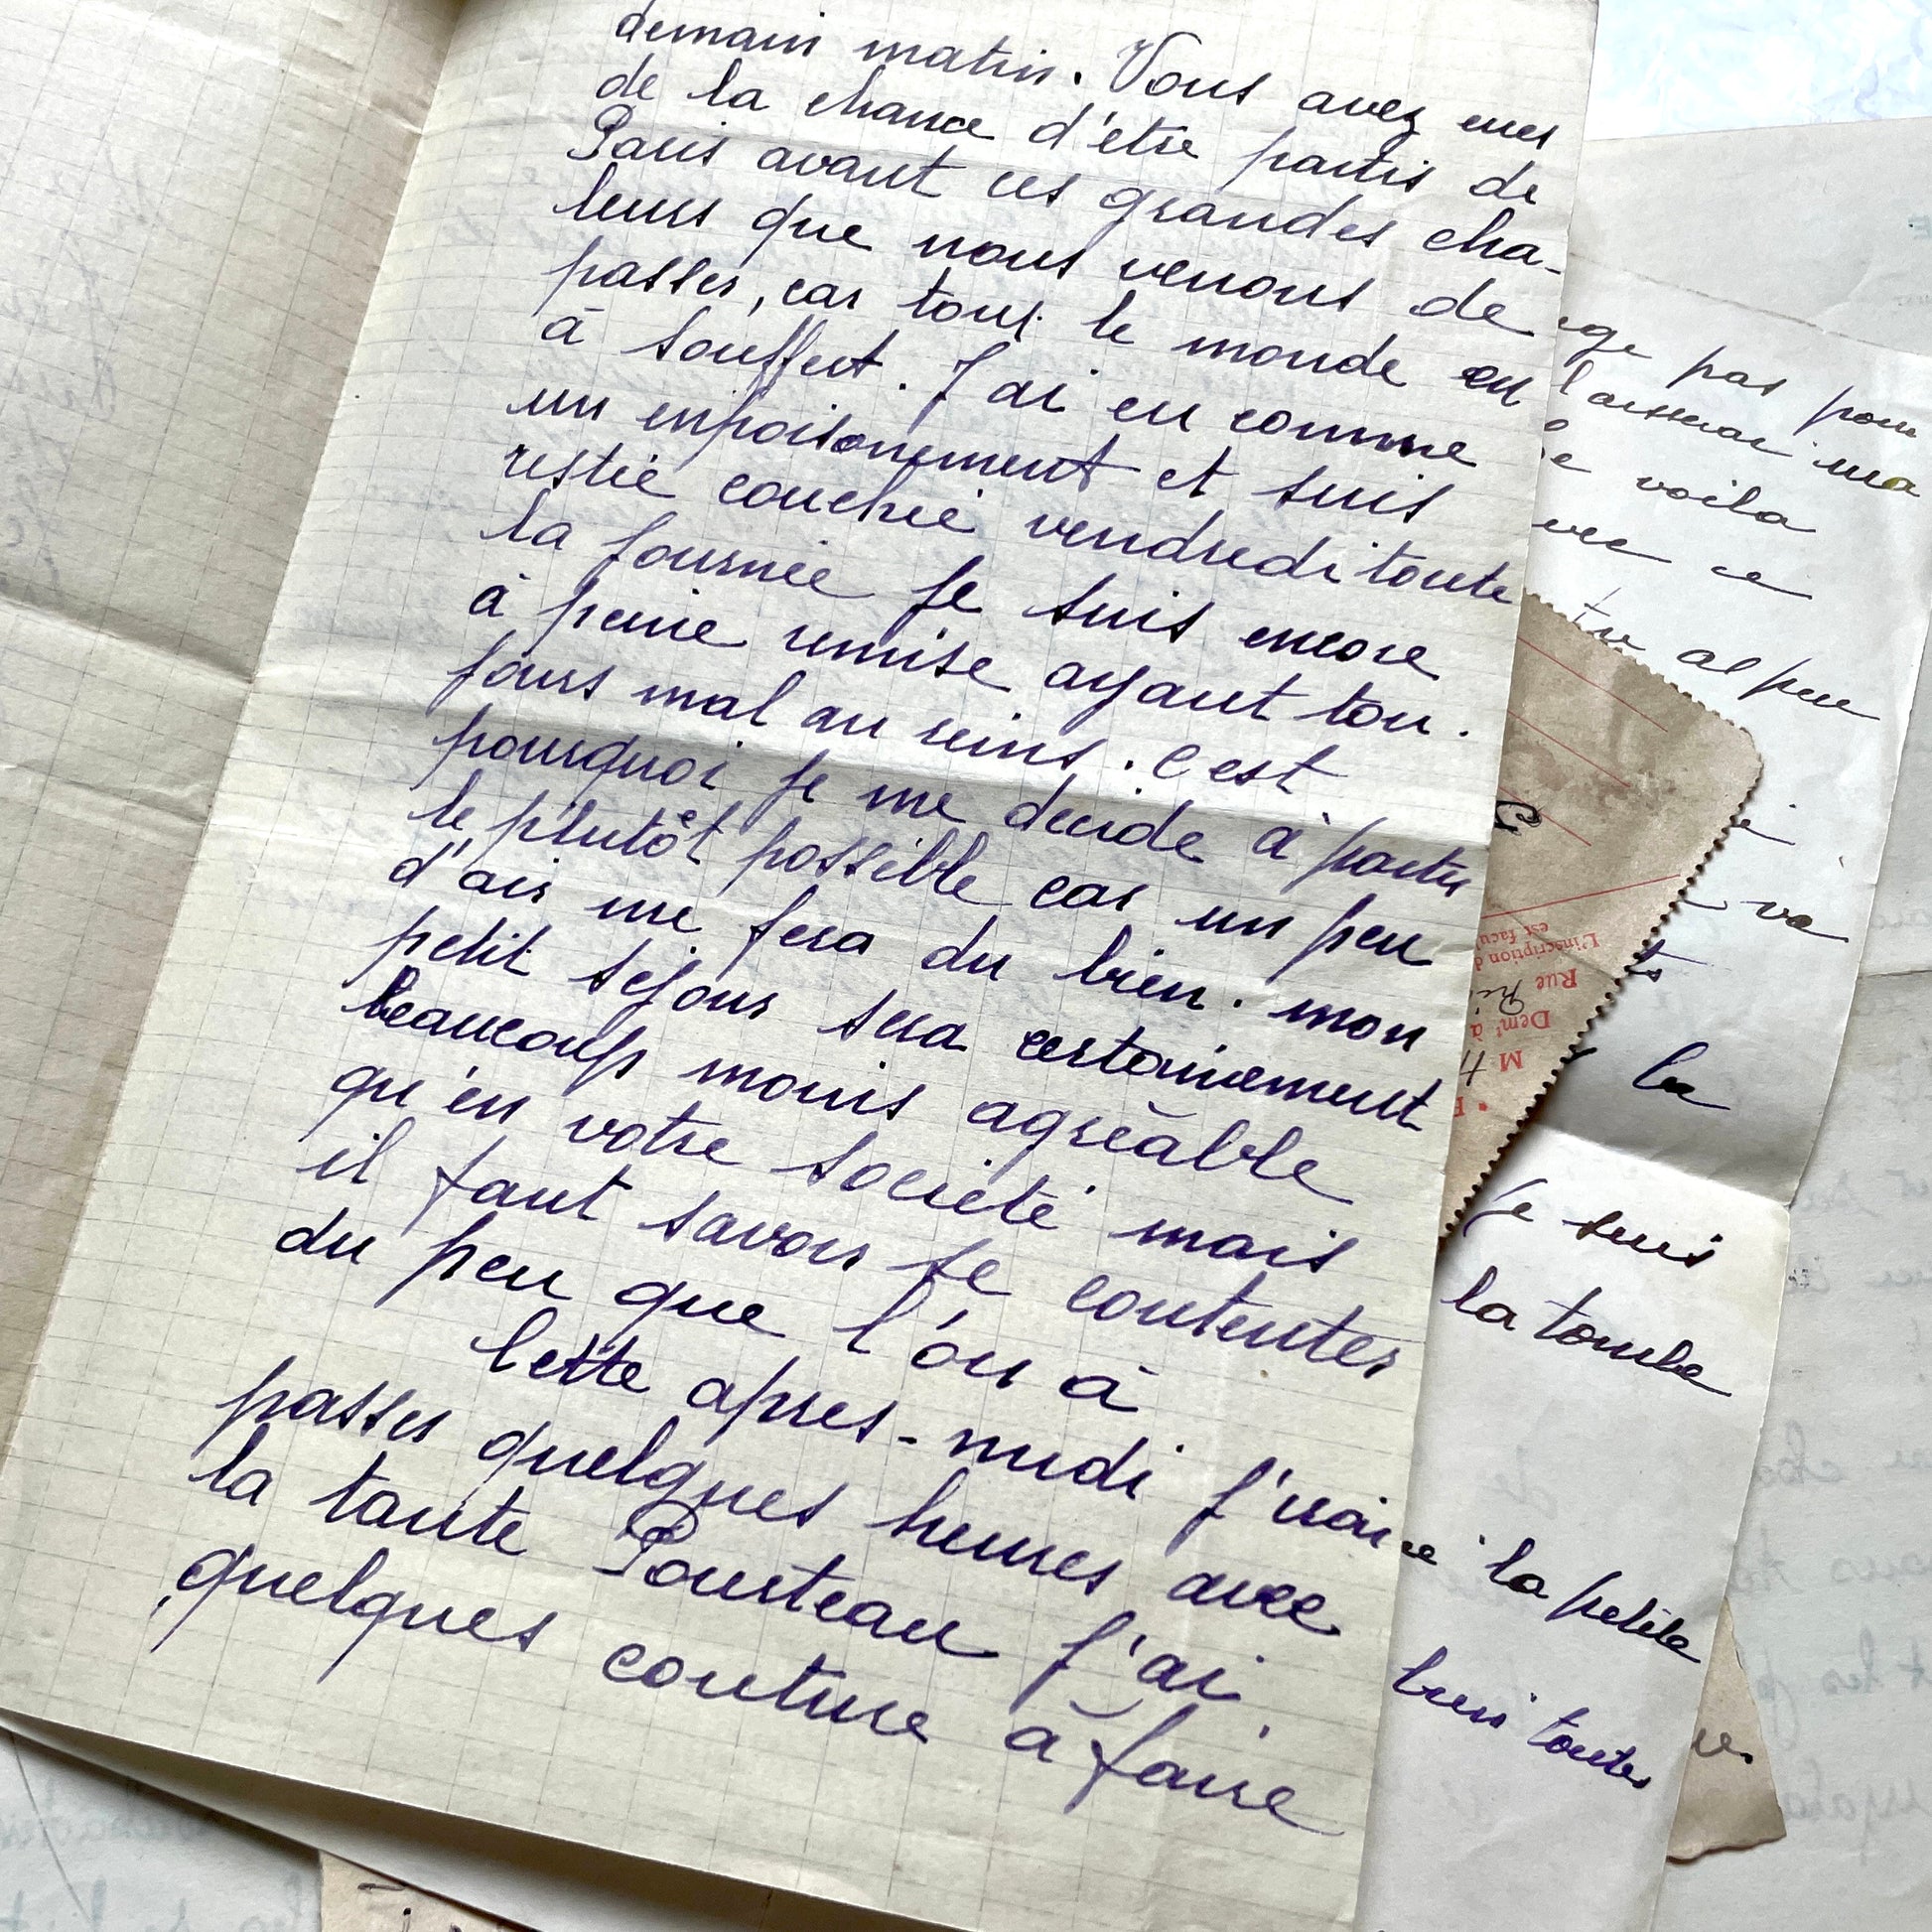 demain matin. Vous avez eues
de la chance d'être partis de
Paris avant ces grandes cha-
leurs que nous venons de
passer, car tous le monde en
à souffert. J'ai eu comme
un enpoisonnement et suis
restée couchée vendredi toute
la journée je suis encore
à peine remise ayant tou-
jours mal au reins. C'est
pourquoi je me decide à partir
le plutôt possible car un peu
d'air me fera du bien. mon
petit séjour sera certainement
beaucoup moins agréable
qu'en votre société mais
il faut savoir se contenter
du peu que l'on à
Cette apres-midi j'irai
passer quelques heures avec
la tante Pourteau j'ai
quelques couture à faire
pas pour
ma
voila
ce
tu as peu
va
la
Je suis
la tombe
la petite
bien toutes
L'inscription d
est facu
Rue
Demt à
M